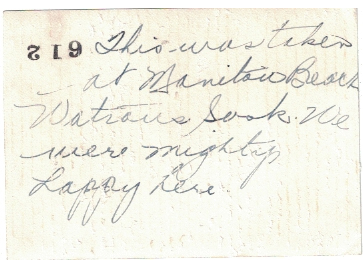 612 This was taken
at Manitou Beach
Watrous Sask. We
were mighty
happy here